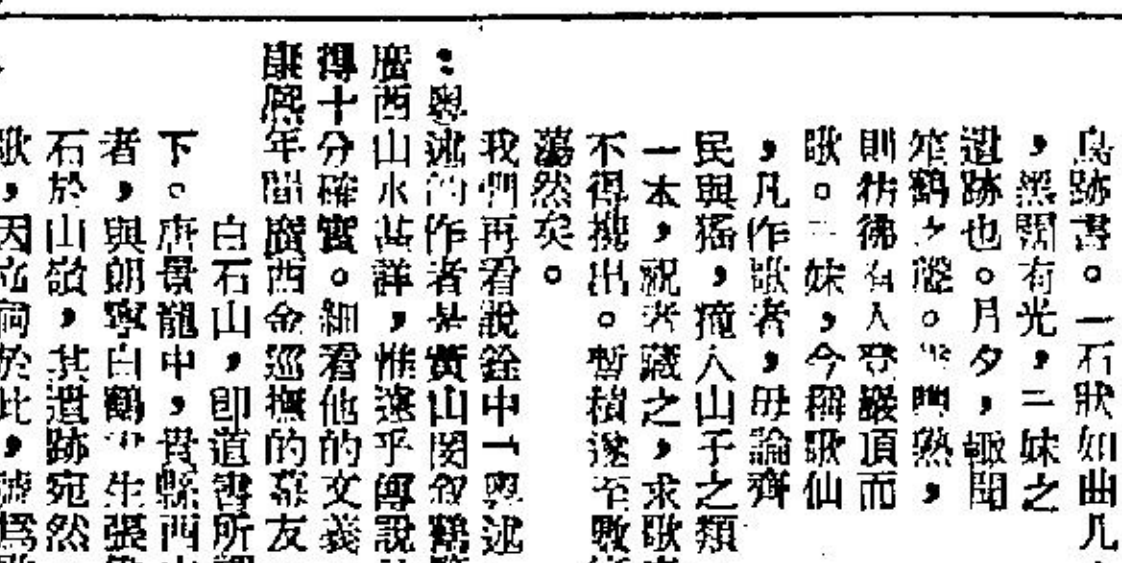 鳥跡書。一石狀如曲几
，黑潤有光，二妹之
遺跡也。月夕，輒聞
笙鶴之聲。熟，
則彷彿有人登巖頂而
歌。三妹，今稱歌仙
，凡作歌者，毋論齊
民與猺，獞人山子之類
一本，祝者藏之，求歌
不得攜出。暫積遂至
蕩然矣。
我們再看說銓中「粵述
：粵述的作者是黃山閔敘鶴
廣西山水甚詳，惟遠乎傳說
得十分確實。細看他的文義
康熙年間廣西金巡撫的幕友
白石山，即道書所
下。唐景龍中，貴縣西
者，與朝寧白鶴 生張
石於山嶺，其遺跡宛然
歌，天 祠於此，號爲